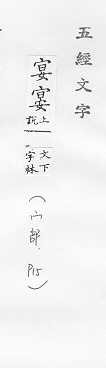 五經文字
宴宴上説
文下字林
(宀部, P15)